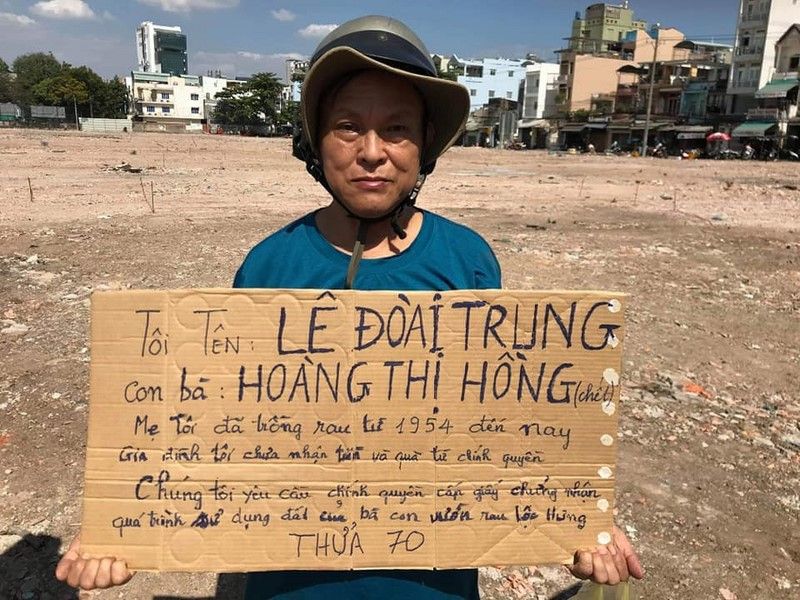 Tôi TÊN: LÊ ĐOÀI TRUNG
con bà: HOÀNG THỊ HỒNG (chết)
Mẹ Tôi đã trồng rau từ 1954 đến nay
Gia đình tôi chưa nhận tiền và quà từ chính quyền
Chúng tôi yêu cầu chính quyền cấp giấy chứng nhận
quá trình sử dụng đất của bà con vườn rau Lộc Hưng
THỬA 70